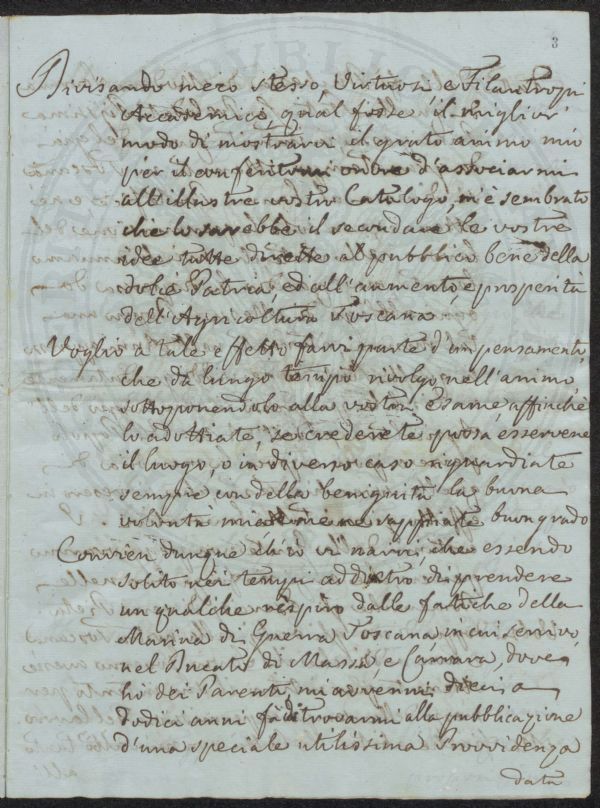 3
Divisando meco stesso, Virtuosi e Filantropi
Accademici, qual fosse il miglior
modo di mostrarvi il grato animo mio
per il conferitomi onore d'associarmi
all'illustre vostro Catalogo, m'è sembrato
che lo sarebbe il secondare le vostre
idee tutte dirette al pubblico bene della
dolce Patria, ed all'aumento, e prosperità
dell'Agricoltura Toscana.
Voglio a tale effetto farvi parte d'un pensamento,
che da lungo tempo rivolgo nell'animo,
sottoponendolo alla vostra esame, affinchè
lo adottiate, se crederete possa esservene
il luogo, o in diverso caso riguardiate
sempre con della benignità la buona
volontà mia, e me ne sappiate buon grado
Convien dunque ch'io vi narri, che essendo
solito nei tempi addietro di prendere
un qualche respiro dalle fatiche della
Marina di Guerra Toscana in cui servivo,
nel Ducato di Massa, e Carrara, dove
ho dei Parenti, mi avvenne dieci, o
dodici anni fà di trovarmi alla pubblicazione
d'una speciale utilissima Provvidenza
data